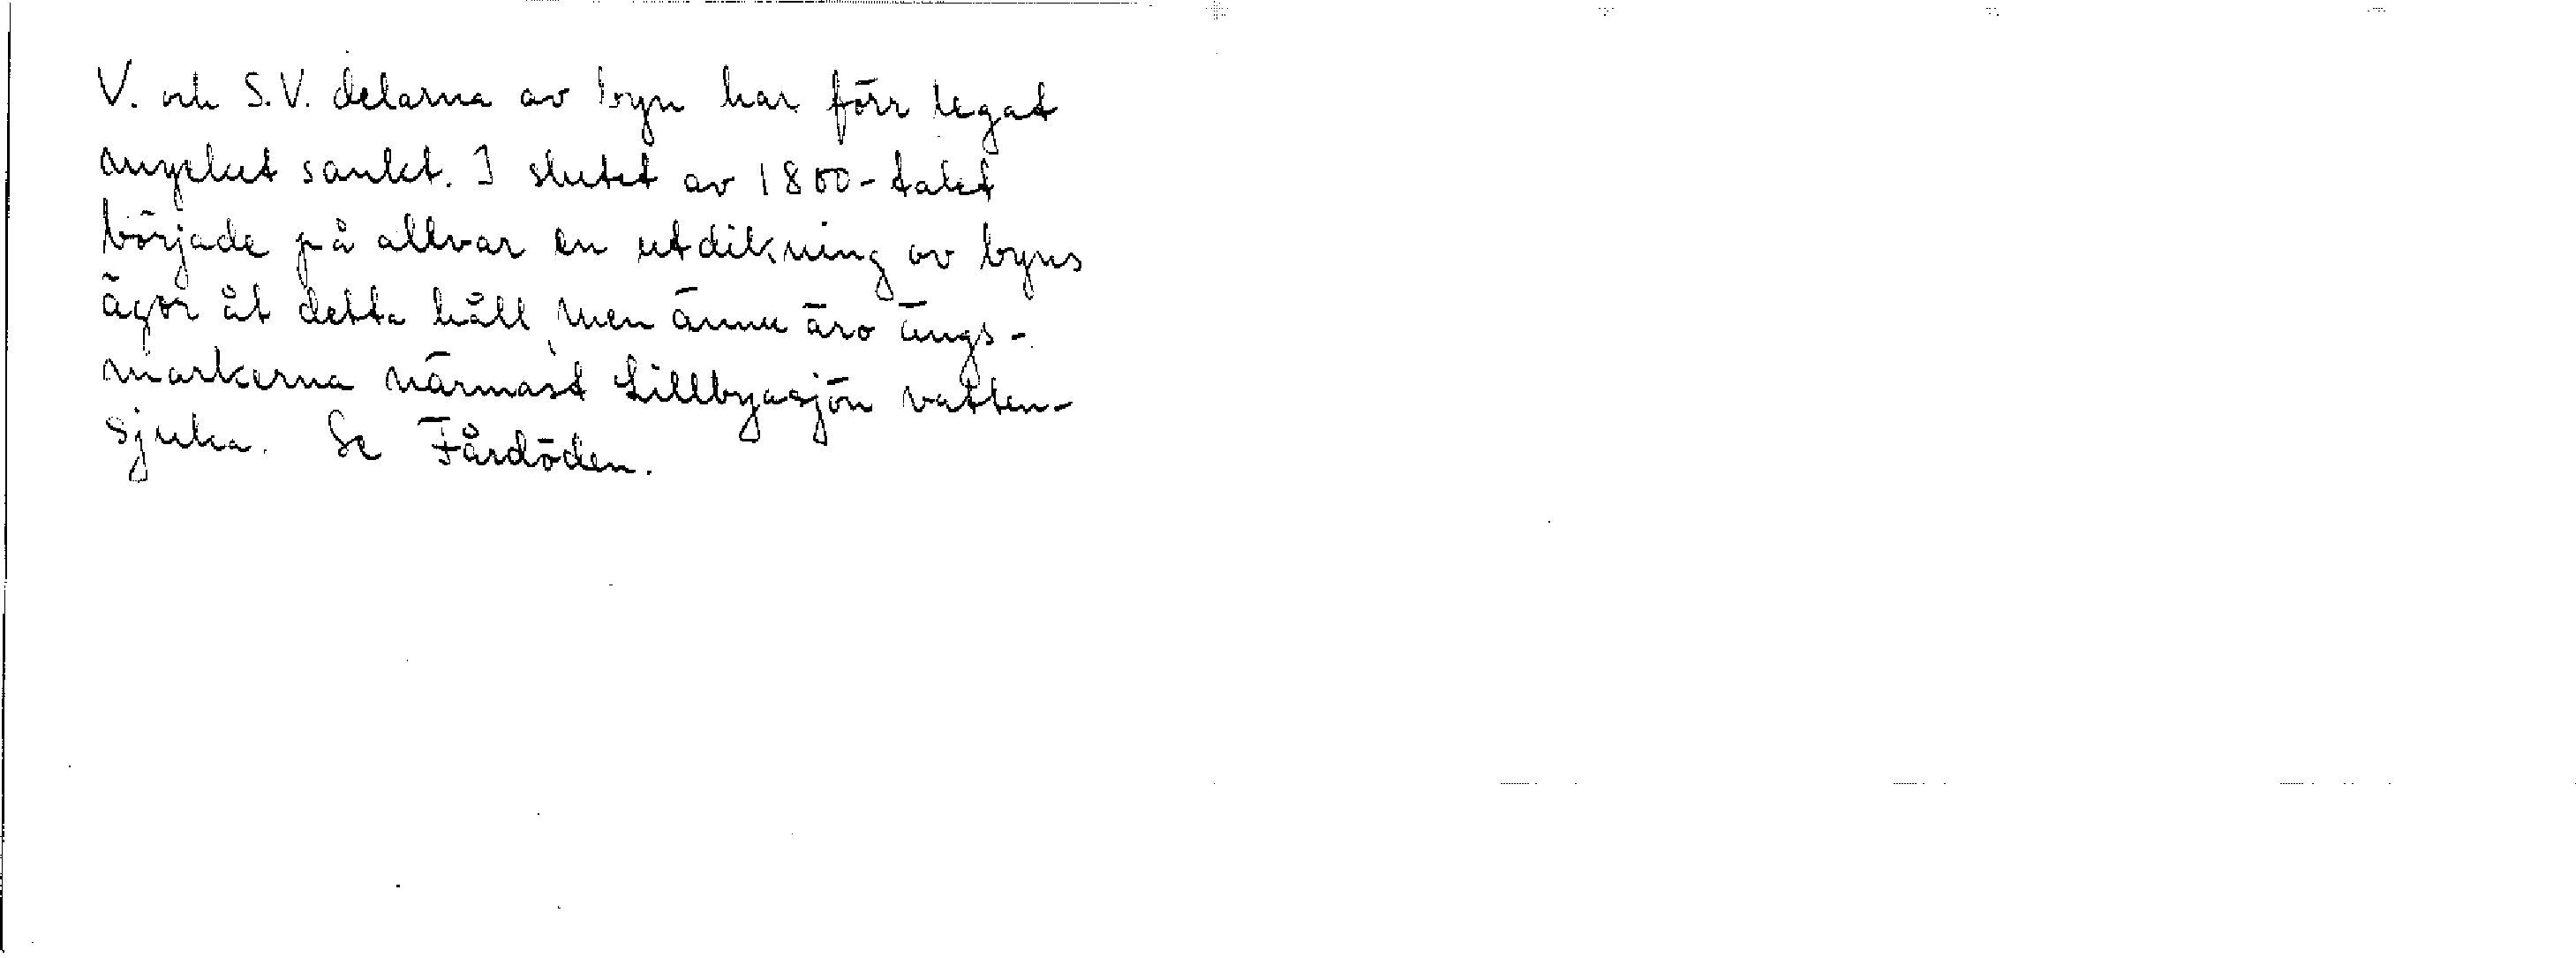 V. och S.V. delarna av byn har förr legat
mycket sankt. I slutet av 1800-talet
började på allvar en utdikning av byns
ägor åt detta håll, men ännu äro ängs-
markerna närmast Lillbyasjön vatten-
sjuka. Se Fårdöden.